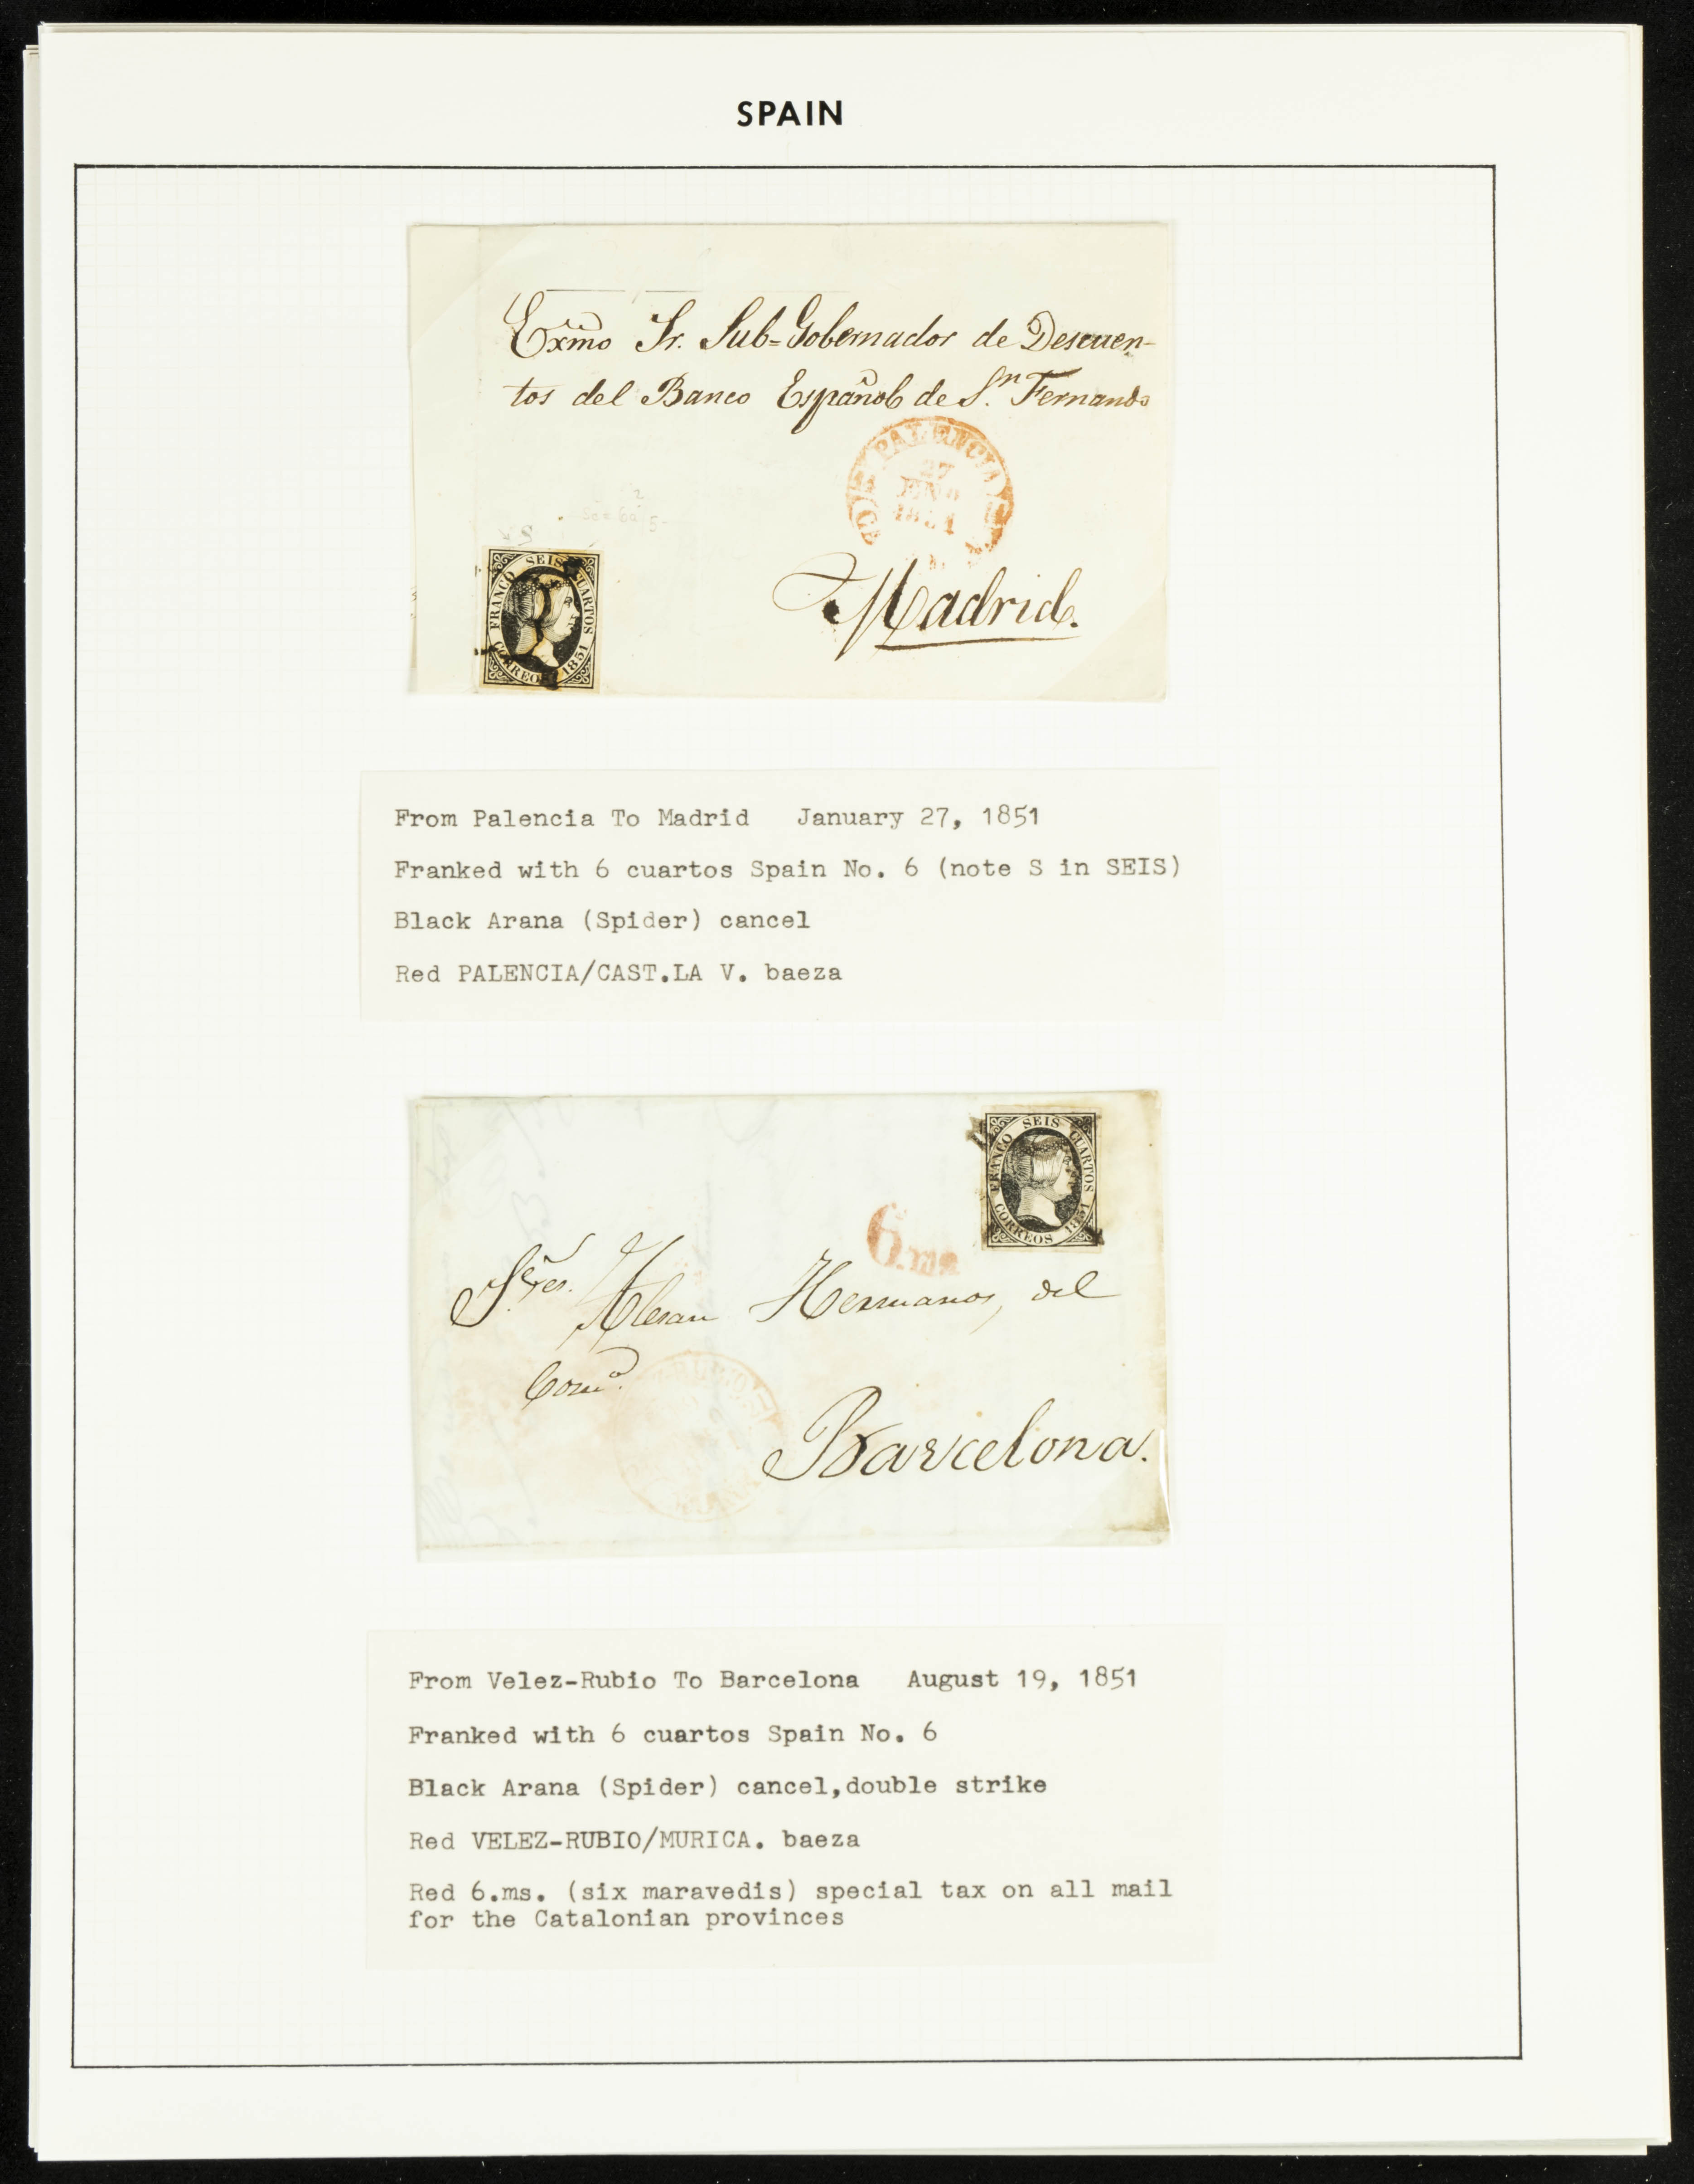 SPAIN
Exmo Sr. Sub=Gobernador de Descuen-
tos del Banco Español de Sn. Fernando
PALENCIA
27
ENO
1851
Madrid.
S
FRANCO SEIS CUARTOS
CORREOS 1851
From Palencia To Madrid January 27, 1851
Franked with 6 cuartos Spain No. 6 (note S in SEIS)
Black Arana (Spider) cancel
Red PALENCIA/CAST.LA V. baeza
FRANCO SEIS CUARTOS
CORREOS 1851
6.ms
Sres. Hermanos, del
Como.
Barcelona.
From Velez-Rubio To Barcelona August 19, 1851
Franked with 6 cuartos Spain No. 6
Black Arana (Spider) cancel,double strike
Red VELEZ-RUBIO/MURICA. baeza
Red 6.ms. (six maravedis) special tax on all mail
for the Catalonian provinces